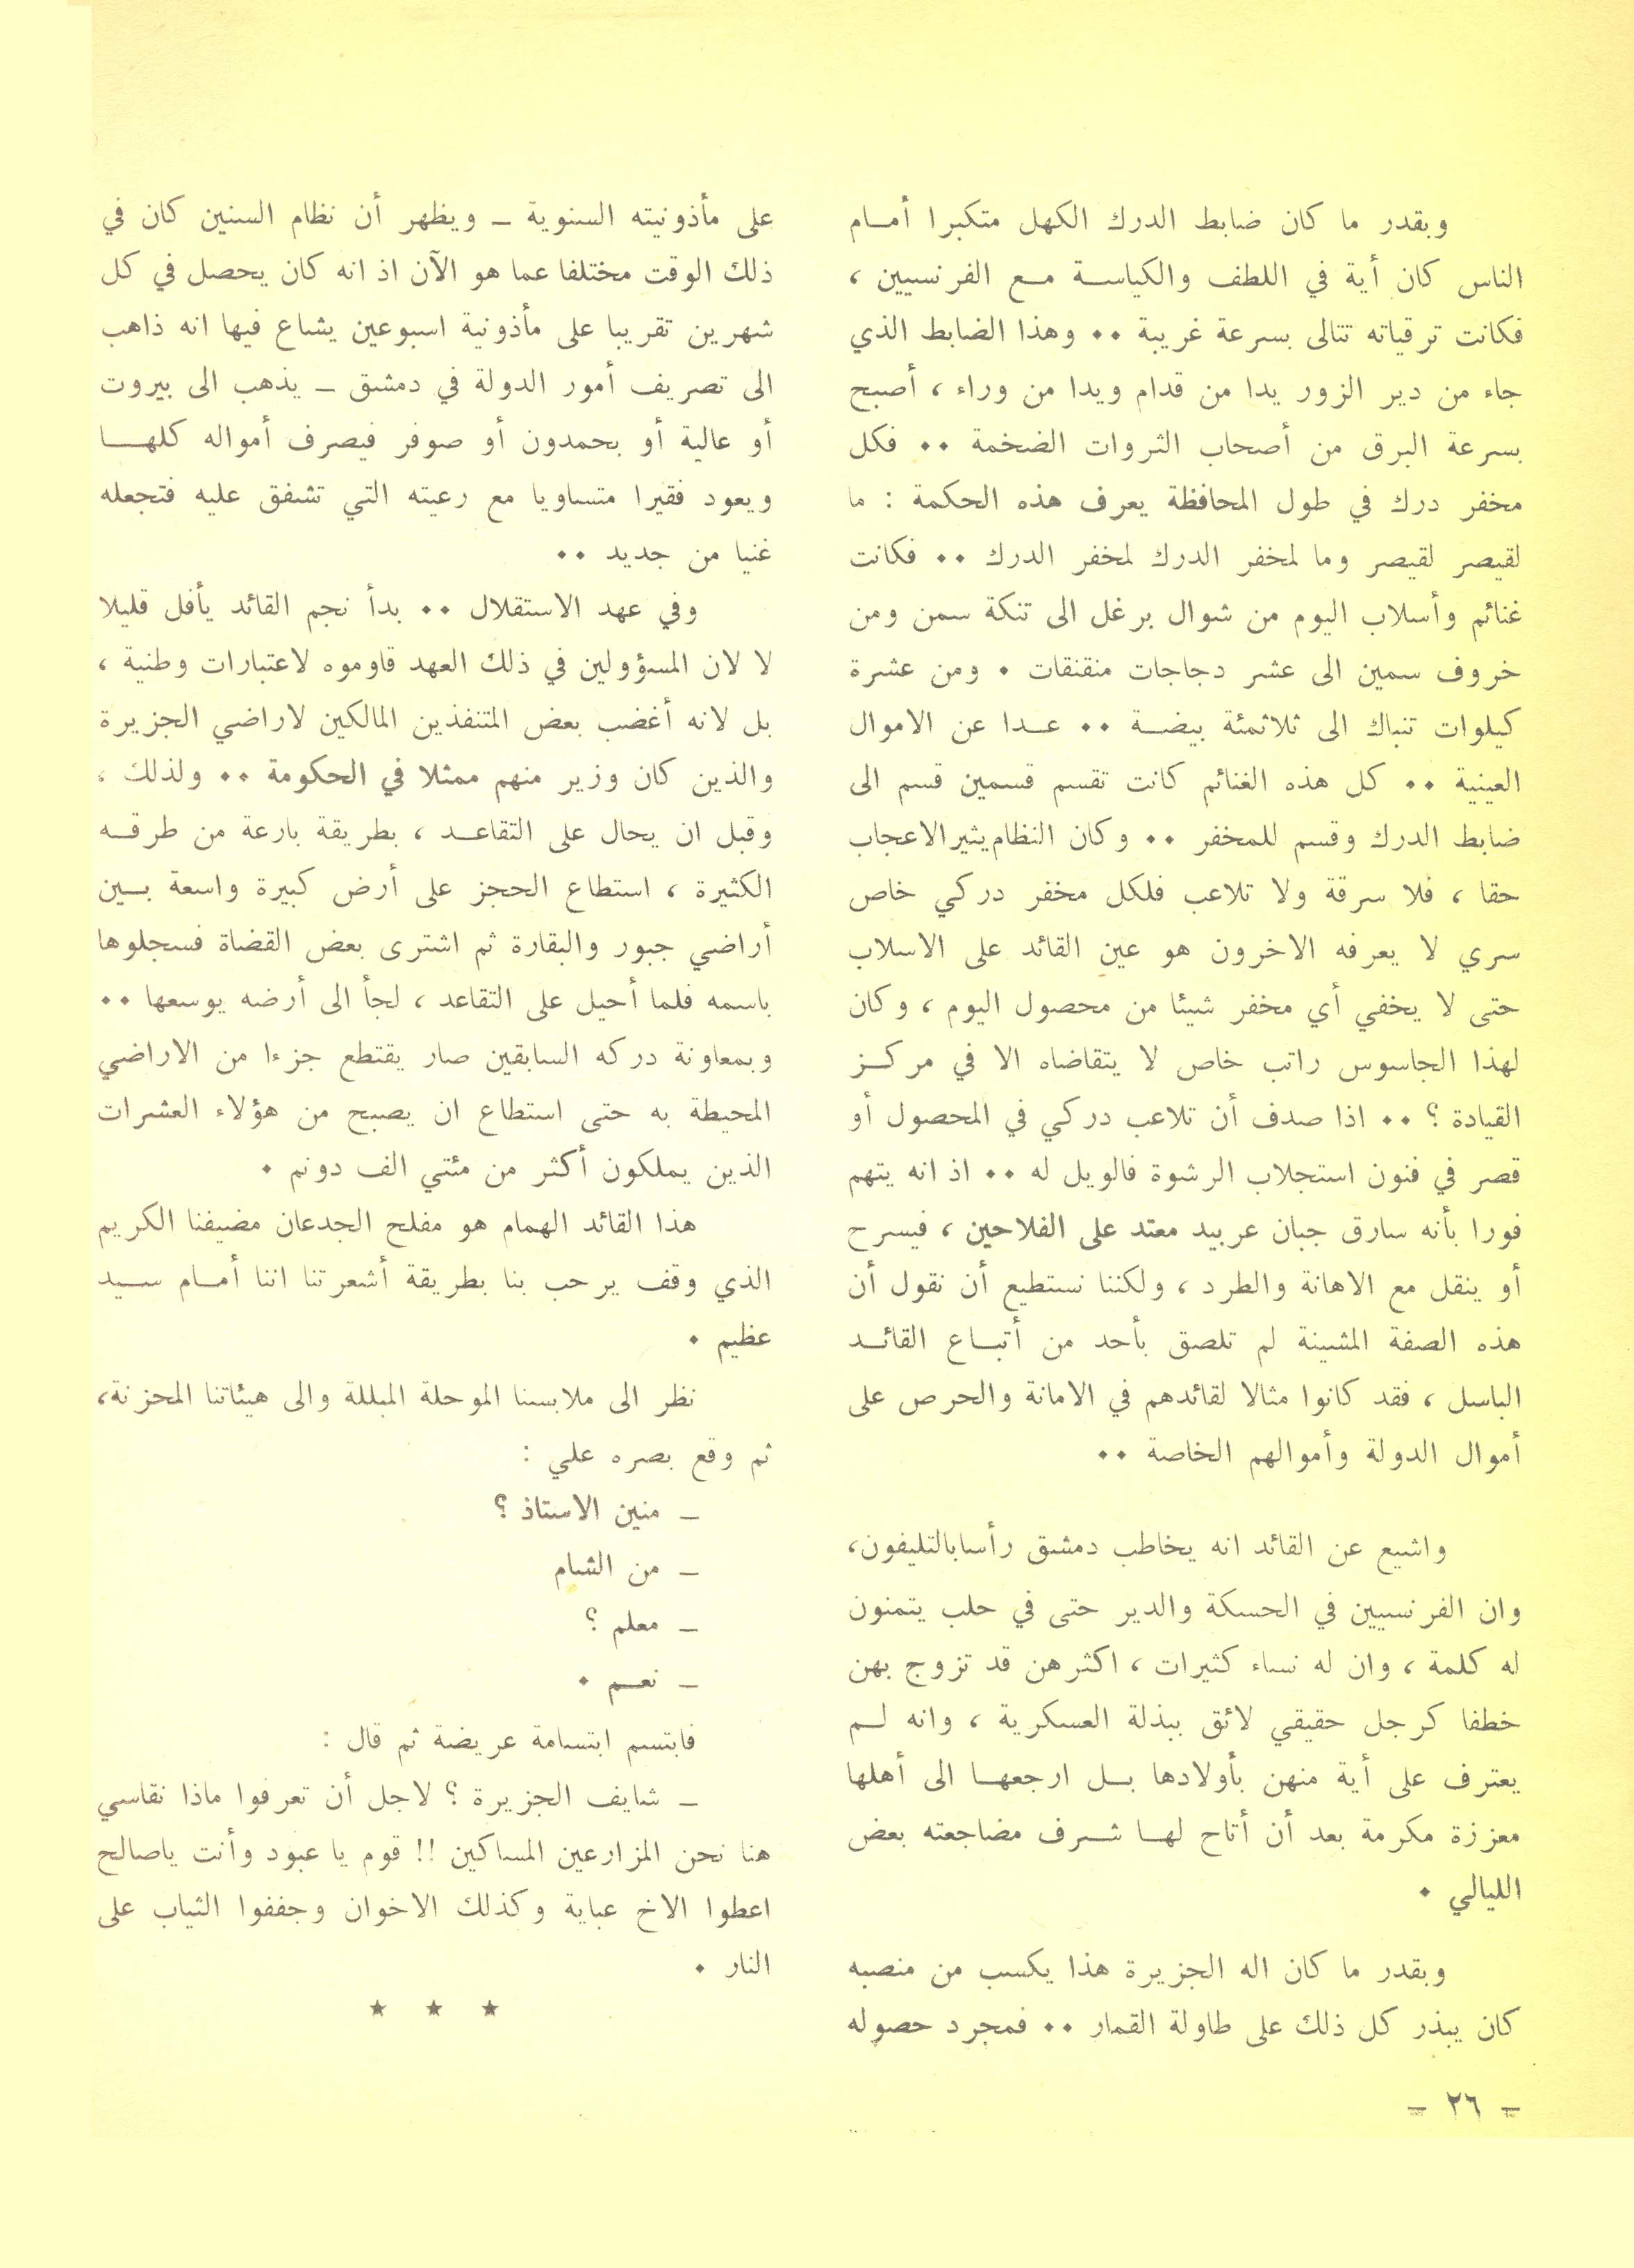 وبقدر ما كان ضابط الدرك الكهل متكبرا أمام
الناس كان أية في اللطف والكياسة مع الفرنسيين ،
فكانت ترقياته تتالى بسرعة غريبة .. وهذا الضابط الذي
جاء من دير الزور يدا من قدام ويدا من وراء ، أصبح
بسرعة البرق من أصحاب الثروات الضخمة .. فكل
مخفر درك في طول المحافظة يعرف هذه الحكمة : ما
لقيصر لقيصر وما لمخفر الدرك لمخفر الدرك .. فكانت
غنائم وأسلاب اليوم من شوال برغل الى تنكة سمن ومن
خروف سمين الى عشر دجاجات منقنقات . ومن عشرة
كيلوات تنباك الى ثلاثمئة بيضة .. عدا عن الاموال
العينية .. كل هذه الغنائم كانت تقسم قسمين قسم الى
ضابط الدرك وقسم للمخفر .. وكان النظام يثير الاعجاب
حقا ، فلا سرقة ولا تلاعب فلكل مخفر دركي خاص
سري لا يعرفه الاخرون هو عين القائد على الاسلاب
حتى لا يخفي أي مخفر شيئا من محصول اليوم ، وكان
لهذا الجاسوس راتب خاص لا يتقاضاه الا في مركز
القيادة ؟ .. اذا صدف أن تلاعب دركي في المحصول أو
قصر في فنون استجلاب الرشوة فالويل له .. اذ انه يتهم
فورا بأنه سارق جبان عربيد معتد على الفلاحين ، فيسرح
أو ينقل مع الاهانة والطرد ، ولكننا نستطيع أن نقول أن
هذه الصفة المشينة لم تلصق بأحد من أتباع القائد
الباسل ، فقد كانوا مثالا لقائدهم في الامانة والحرص على
أموال الدولة وأموالهم الخاصة ..
واشيع عن القائد انه يخاطب دمشق رأسا بالتليفون،
وان الفرنسيين في الحسكة والدير حتى في حلب يتمنون
له كلمة ، وان له نساء كثيرات ، اكثرهن قد تزوج بهن
خطفا كرجل حقيقي لائق ببذلة العسكرية ، وانه لم
يعترف على أية منهن بأولادها بل ارجعها الى أهلها
معززة مكرمة بعد أن أتاح لها شرف مضاجعته بعض
الليالي .
وبقدر ما كان اله الجزيرة هذا يكسب من منصبه
كان يبذر كل ذلك على طاولة القمار .. فمجرد حصوله
على مأذونيته السنوية – ويظهر أن نظام السنين كان في
ذلك الوقت مختلفا عما هو الآن اذ انه كان يحصل في كل
شهرين تقريبا على مأذونية اسبوعين يشاع فيها انه ذاهب
الى تصريف أمور الدولة في دمشق – يذهب الى بيروت
أو عالية أو بحمدون أو صوفر فيصرف أمواله كلها
ويعود فقيرا متساويا مع رعيته التي تشفق عليه فتجعله
غنيا من جديد ..
وفي عهد الاستقلال .. بدأ نجم القائد يأفل قليلا
لا لان المسؤولين في ذلك العهد قاوموه لاعتبارات وطنية ،
بل لانه أغضب بعض المتنفذين المالكين لاراضي الجزيرة
والذين كان وزير منهم ممثلا في الحكومة .. ولذلك ،
وقبل ان يحال على التقاعد ، بطريقة بارعة من طرقه
الكثيرة ، استطاع الحجز على أرض كبيرة واسعة بين
أراضي جبور والبقارة ثم اشترى بعض القضاة فسجلوها
باسمه فلما أحيل على التقاعد ، لجأ الى أرضه يوسعها ..
وبمعاونة دركه السابقين صار يقتطع جزءا من الاراضي
المحيطة به حتى استطاع ان يصبح من هؤلاء العشرات
الذين يملكون أكثر من مئتي الف دونم .
هذا القائد الهمام هو مفلح الجدعان مضيفنا الكريم
الذي وقف يرحب بنا بطريقة أشعرتنا اننا أمام سيد
عظيم .
نظر الى ملابسنا الموحلة المبللة والى هيئاتنا المحزنة،
ثم وقع بصره علي :
– منين الاستاذ ؟
– من الشام
– معلم ؟
– نعم .
فابتسم ابتسامة عريضة ثم قال :
– شايف الجزيرة ؟ لاجل أن تعرفوا ماذا نقاسي
هنا نحن المزارعين المساكين !! قوم يا عبود وأنت ياصالح
اعطوا الاخ عباية وكذلك الاخوان وجففوا الثياب على
النار .
★ ★ ★
– ٢٦ –